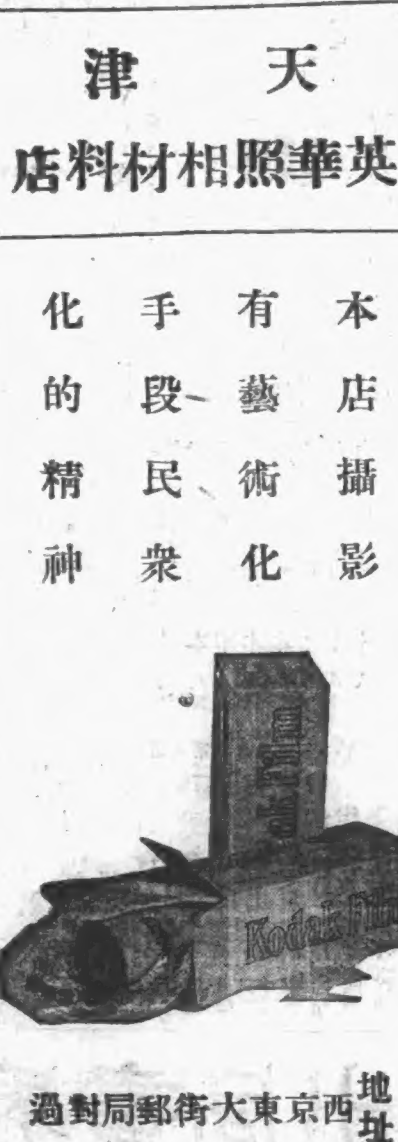 天津
英華照相材料店
本店攝影
有藝術化
手段民衆
化的精神
Kodak Film
地址
西京東大街郵局對過